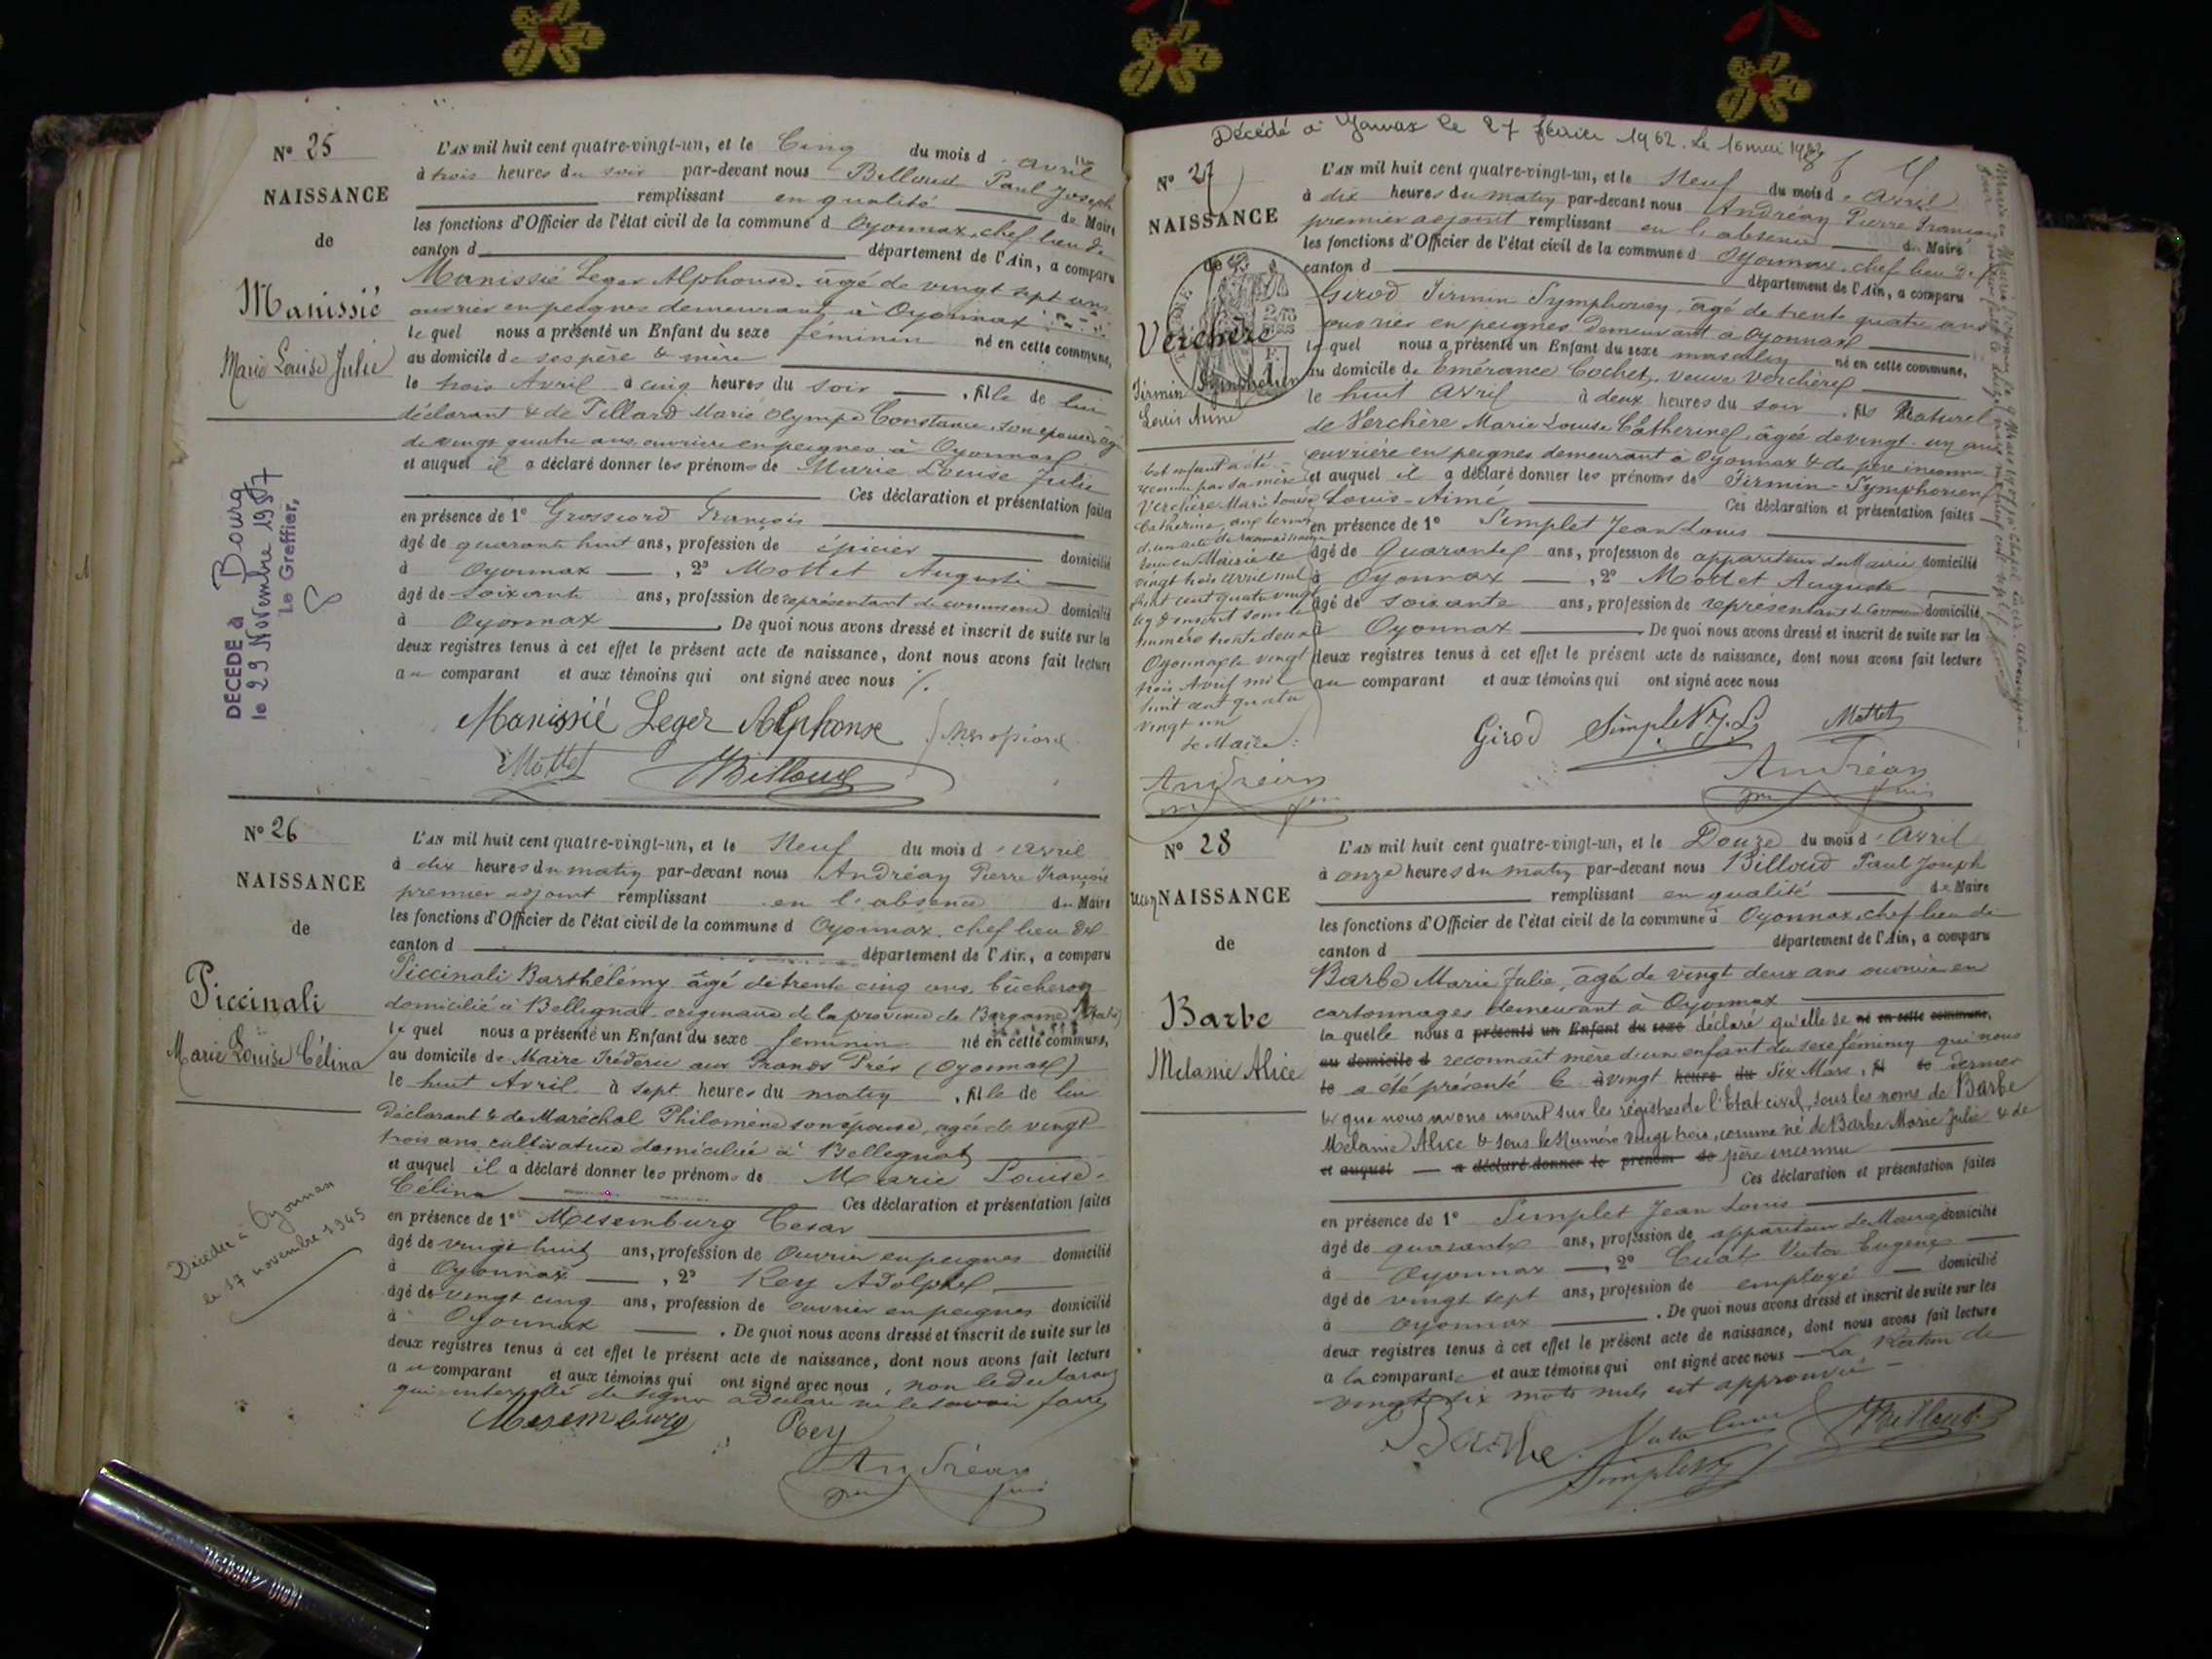 N° 25
NAISSANCE
de
Manissié
Marie Louise Julie
DÉCÉDÉ à Bourg
le 29 Novembre 1957
Le Greffier,
L'AN mil huit cent quatre-vingt-un, et le Cinq du mois d'avril
à trois heures du soir par-devant nous Billoud Paul Joseph
remplissant en qualité de Maire
les fonctions d'Officier de l'état civil de la commune d Oyonnax, chef lieu de
canton d département de l'Ain, a comparu
Manissié Leger Alphonse, âgé de vingt sept ans
ouvrier en peignes demeurant à Oyonnax
le quel nous a présenté un Enfant du sexe féminin né en cette commune,
au domicile de ses père & mère
le trois Avril à cinq heures du soir , fille de lui
déclarant & de Pillard Marie Olympe Constance, son épouse, âgée
de vingt quatre ans, ouvrière en peignes à Oyonnax
et auquel il a déclaré donner les prénoms de Marie Louise Julie
Ces déclaration et présentation faites
en présence de 1° Grossiord François
âgé de quarante huit ans, profession de épicier domicilié
à Oyonnax , 2° Mottet Auguste
âgé de soixante ans, profession de représentant de commerce domicilié
à Oyonnax . De quoi nous avons dressé et inscrit de suite sur les
deux registres tenus à cet effet le présent acte de naissance, dont nous avons fait lecture
au comparant et aux témoins qui ont signé avec nous
Manissié Leger Alphonse
Mottet Billoud
N° 26
NAISSANCE
de
Piccinali
Marie Louise Célina
Décédée à Oyonnax
le 17 novembre 1945
L'AN mil huit cent quatre-vingt-un, et le Neuf du mois d'avril
à dix heures du matin par-devant nous Andréan Pierre François
premier adjoint remplissant en l'absence du Maire
les fonctions d'Officier de l'état civil de la commune d Oyonnax, chef lieu de
canton d département de l'Ain, a comparu
Piccinali Barthélémy âgé de trente cinq ans, bûcheron
domicilié à Bellignat, originaire de la province de Bergame (Italie)
le quel nous a présenté un Enfant du sexe féminin né en cette commune,
au domicile de Maire Fréderic aux Grands Prés (Oyonnax)
le huit Avril à sept heures du matin , fille de lui
déclarant & de Maréchal Philomène son épouse, agée de vingt
trois ans, cultivatrice domiciliée à Bellegnat
et auquel il a déclaré donner les prénoms de Marie Louise
Célina Ces déclaration et présentation faites
en présence de 1° Mesemburg Cesar
âgé de vingt huit ans, profession de Ouvrier en peignes domicilié
à Oyonnax , 2° Rey Adolphe
âgé de vingt cinq ans, profession de ouvrier en peignes domicilié
à Oyonnax . De quoi nous avons dressé et inscrit de suite sur les
deux registres tenus à cet effet le présent acte de naissance, dont nous avons fait lecture
au comparant et aux témoins qui ont signé avec nous, non le déclarant
qui interpellé de signer a déclaré ne le savoir faire
Mesemburg Rey
Andréan
Décédé à Oyonnax le 27 février 1962. Le 16 mai 1962
N° 27
NAISSANCE
de
Verchère
Firmin Symphorien
Louis Aimé
Cet enfant a été
reconnu par sa mère
Verchère Marie Louise
Catherine, aux termes
d'un acte de reconnaissance
reçu en Mairie le
vingt trois avril mil
huit cent quatre vingt
un & inscrit sous le
numéro trente deux
Oyonnax le vingt
trois Avril mil
huit cent quatre
vingt un
Le Maire:
Andréan
L'AN mil huit cent quatre-vingt-un, et le Neuf du mois d'Avril
à dix heures du matin par-devant nous Andréan Pierre François
premier adjoint remplissant en l'absence du Maire
les fonctions d'Officier de l'état civil de la commune d Oyonnax, chef lieu de
canton d département de l'Ain, a comparu
Girod Firmin Symphorien, âgé de trente quatre ans
ouvrier en peignes demeurant à Oyonnax
le quel nous a présenté un Enfant du sexe masculin né en cette commune,
au domicile de Emérance Cochet, veuve Verchère
le huit Avril à deux heures du soir , fils Naturel
de Verchère Marie Louise Catherine, âgée de vingt un ans
ouvrière en peignes demeurant à Oyonnax & de père inconnu
et auquel il a déclaré donner les prénoms de Firmin-Symphorien
Louis-Aimé Ces déclaration et présentation faites
en présence de 1° Simplet Jean Louis
âgé de Quarante ans, profession de appariteur de Mairie domicilié
à Oyonnax , 2° Mottet Auguste
âgé de soixante ans, profession de représentant de Commerce domicilié
à Oyonnax . De quoi nous avons dressé et inscrit de suite sur les
deux registres tenus à cet effet le présent acte de naissance, dont nous avons fait lecture
au comparant et aux témoins qui ont signé avec nous
Girod Simplet J. L. Mottet
Andréan
N° 28
NAISSANCE
de
Barbe
Mélanie Alice
L'AN mil huit cent quatre-vingt-un, et le Douze du mois d'Avril
à onze heures du matin par-devant nous Billoud Paul Joseph
remplissant en qualité de Maire
les fonctions d'Officier de l'état civil de la commune d Oyonnax, chef lieu de
canton d département de l'Ain, a comparu
Barbe Marie Julie, âgée de vingt deux ans ouvrière en
cartonnages demeurant à Oyonnax
la quelle nous a présenté un Enfant du sexe déclaré qu'elle se né en cette commune,
au domicile d reconnait mère d'un enfant du sexe féminin qui nous
le a été présenté le à vingt heure du Six Mars, fil le dernier
& que nous avons inscrit sur les régistres de l'Etat civil, sous les noms de Barbe
Mélanie Alice & sous le Numéro vingt trois, comme né de Barbe Marie Julie & de
et auquel a déclaré donner le prénom de père inconnu
Ces déclaration et présentation faites
en présence de 1° Simplet Jean Louis
âgé de quarante ans, profession de appariteur de Mairie domicilié
à Oyonnax , 2° Cuat Victor Eugène
âgé de vingt sept ans, profession de employé domicilié
à Oyonnax . De quoi nous avons dressé et inscrit de suite sur les
deux registres tenus à cet effet le présent acte de naissance, dont nous avons fait lecture
a la comparante et aux témoins qui ont signé avec nous La Ration de
vingt six mots nuls est approuvée
Barbe Billoud
Simplet